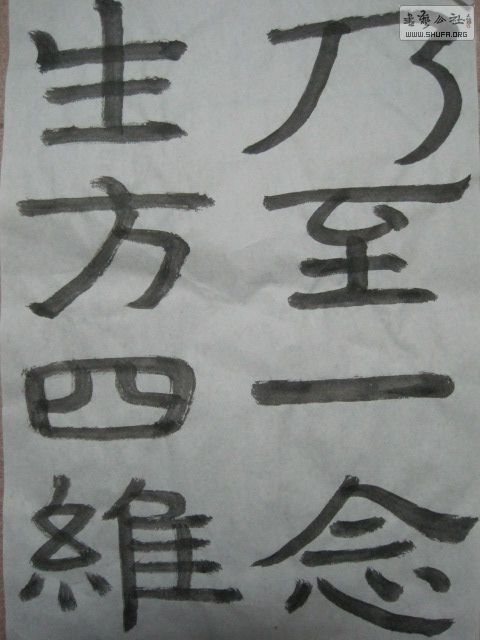 乃至一念
生方四維
書法公社
WWW.SHUFA.ORG